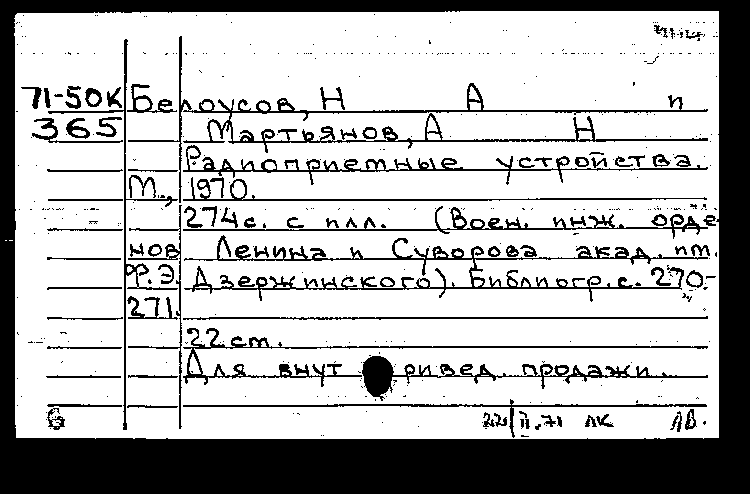 71-50К Белоусов, Н А и
365 Мартьянов, А Н
Радиоприемные устройства.
М., 1970.
274с. с илл. (Воен. инж. орде-
нов Ленина и Суворова акад. им.
Ф.Э. Дзержинского). Библиогр.с. 270-
271.
22см.
Для внут ривед. продажи.
22/II.71 ЛК ЛВ.